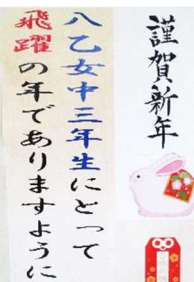 謹賀新年
八乙女中三年生にとって
飛躍の年でありますように